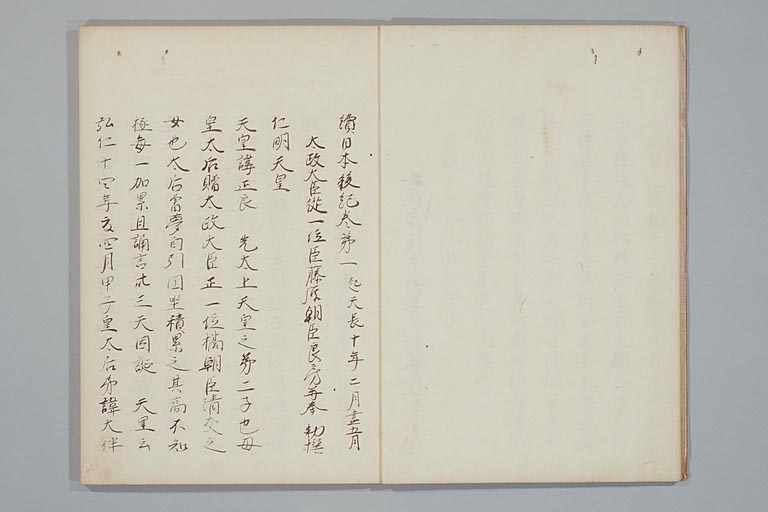 續日本後紀卷第一 起天長十年二月盡五月
太政大臣從一位臣藤原朝臣良房等奉 勅撰
仁明天皇
天皇諱正良 先太上天皇之第二子也母
皇太后贈太政大臣正一位橘朝臣清友之
女也太后曽夢自引圓座積累之其高不知
極每一加累且誦言卅三天因誕 天皇云
弘仁十四年夏四月甲子皇太后弟諱大伴